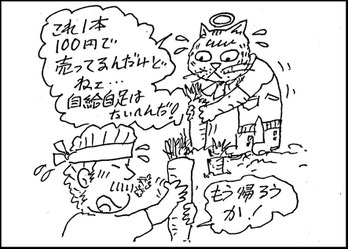 これ1本
100円で
売ってるんだけど
ねェ…
自給自足は
たいへんだ!
もう帰ろう
か!